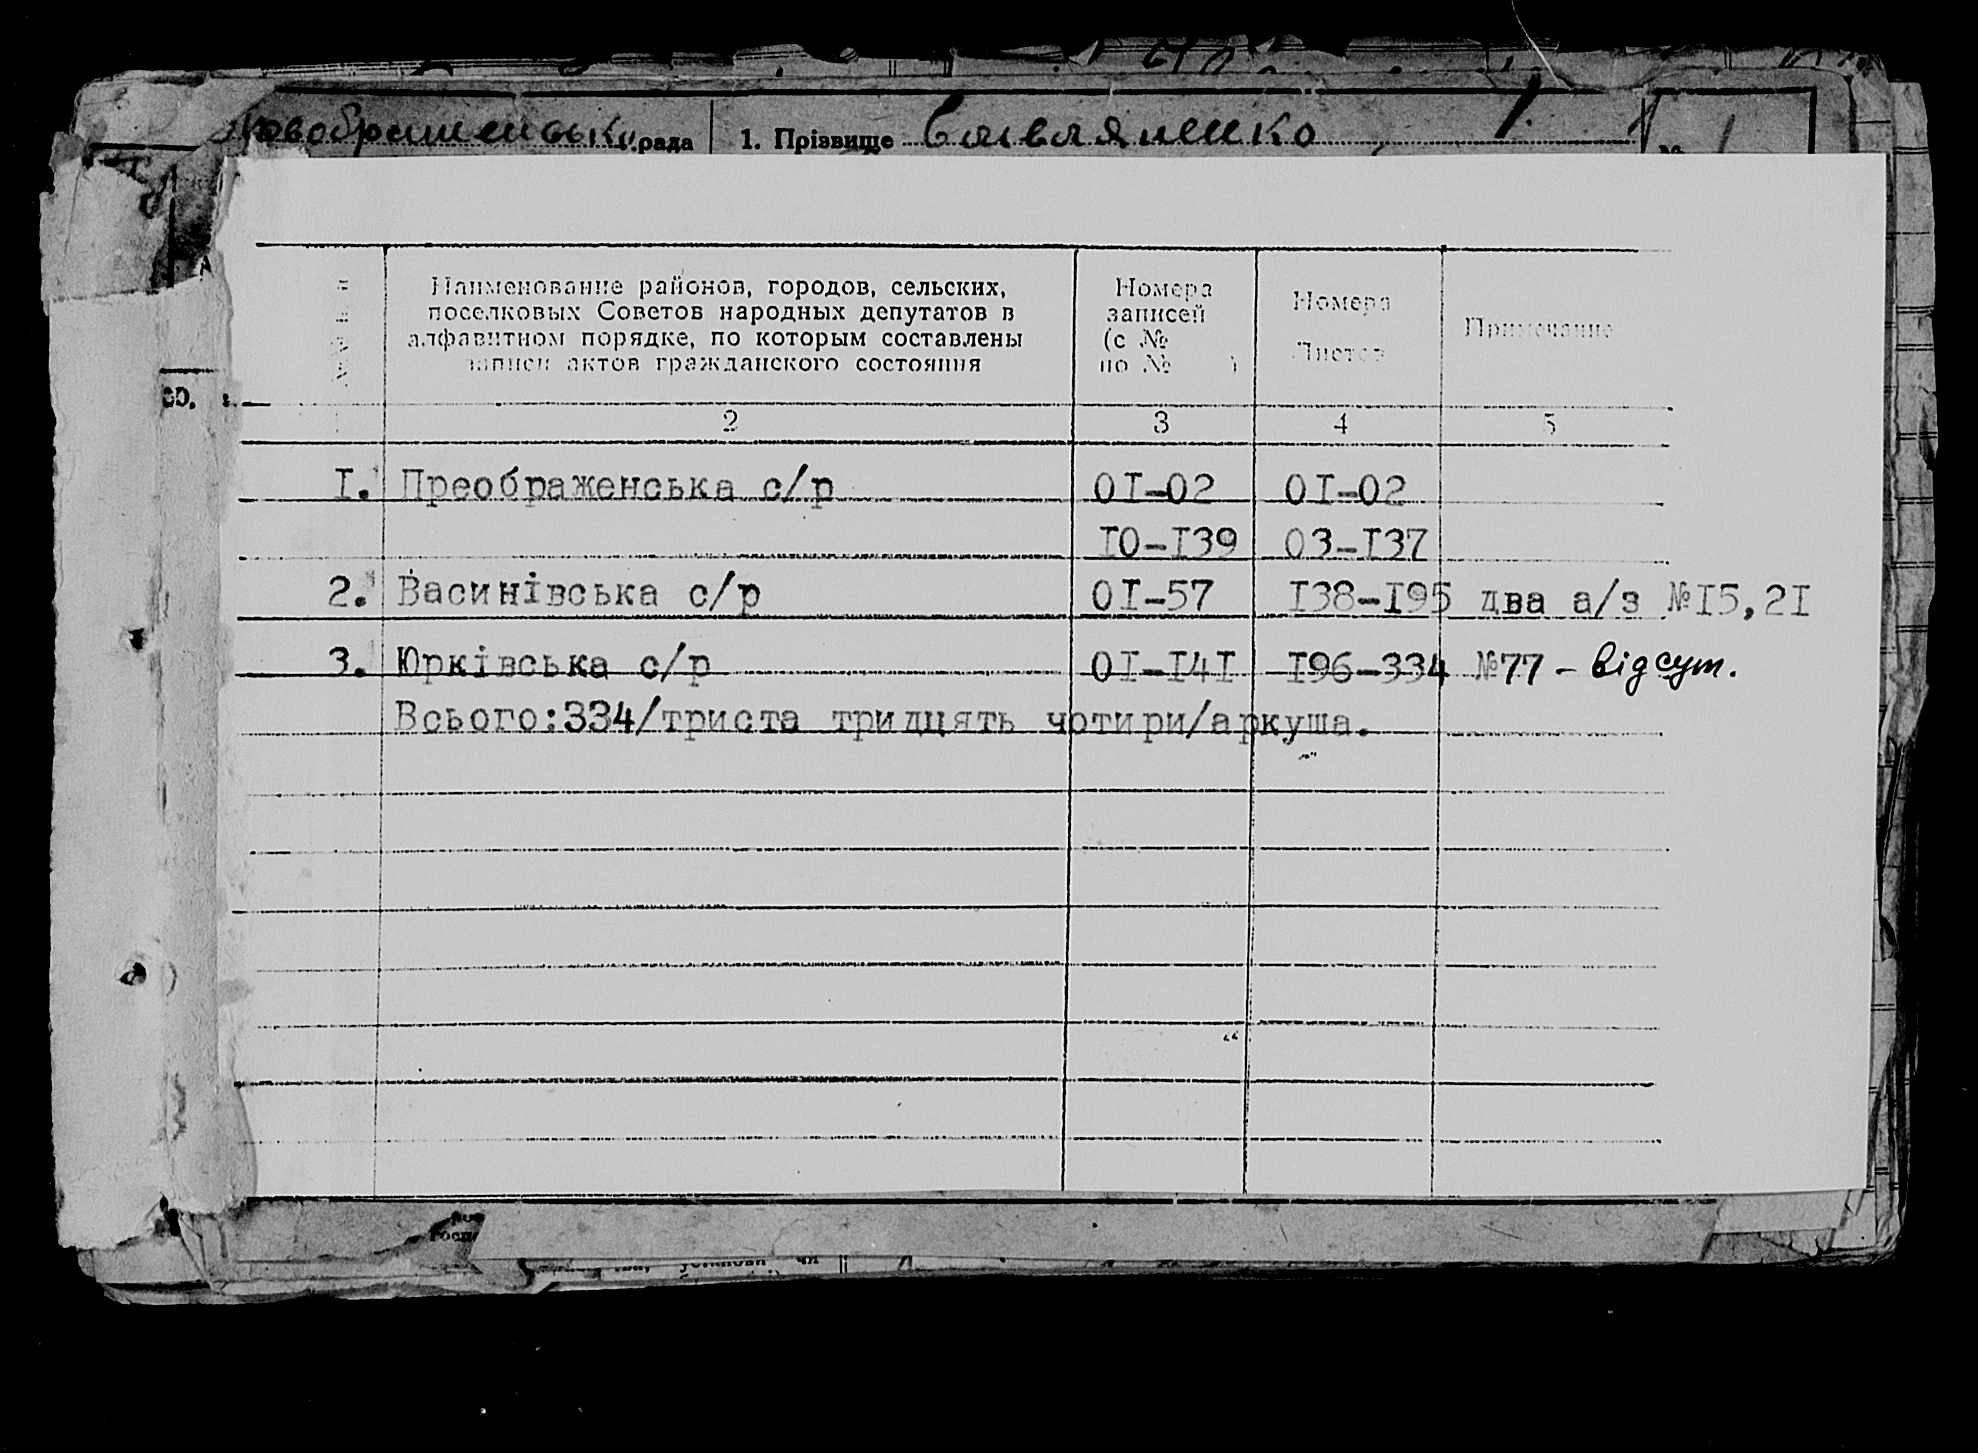 рада 1. Прізвище
№№
Наименование районов, городов, сельских,
поселковых Советов народных депутатов в
алфавитном порядке, по которым составлены
записи актов гражданского состояния
Номера
записей
(с №
по № )
Номера
Листов
Примечание
2 3 4 5
1. Преображенська с/р 01-02 01-02
10-139 03-137
2. Васинівська с/р 01-57 138-195 два а/з №15,21
3. Юрківська с/р 01-141 196-334 №77 - відсут.
Всього:334/триста тридцять чотири/аркуша.